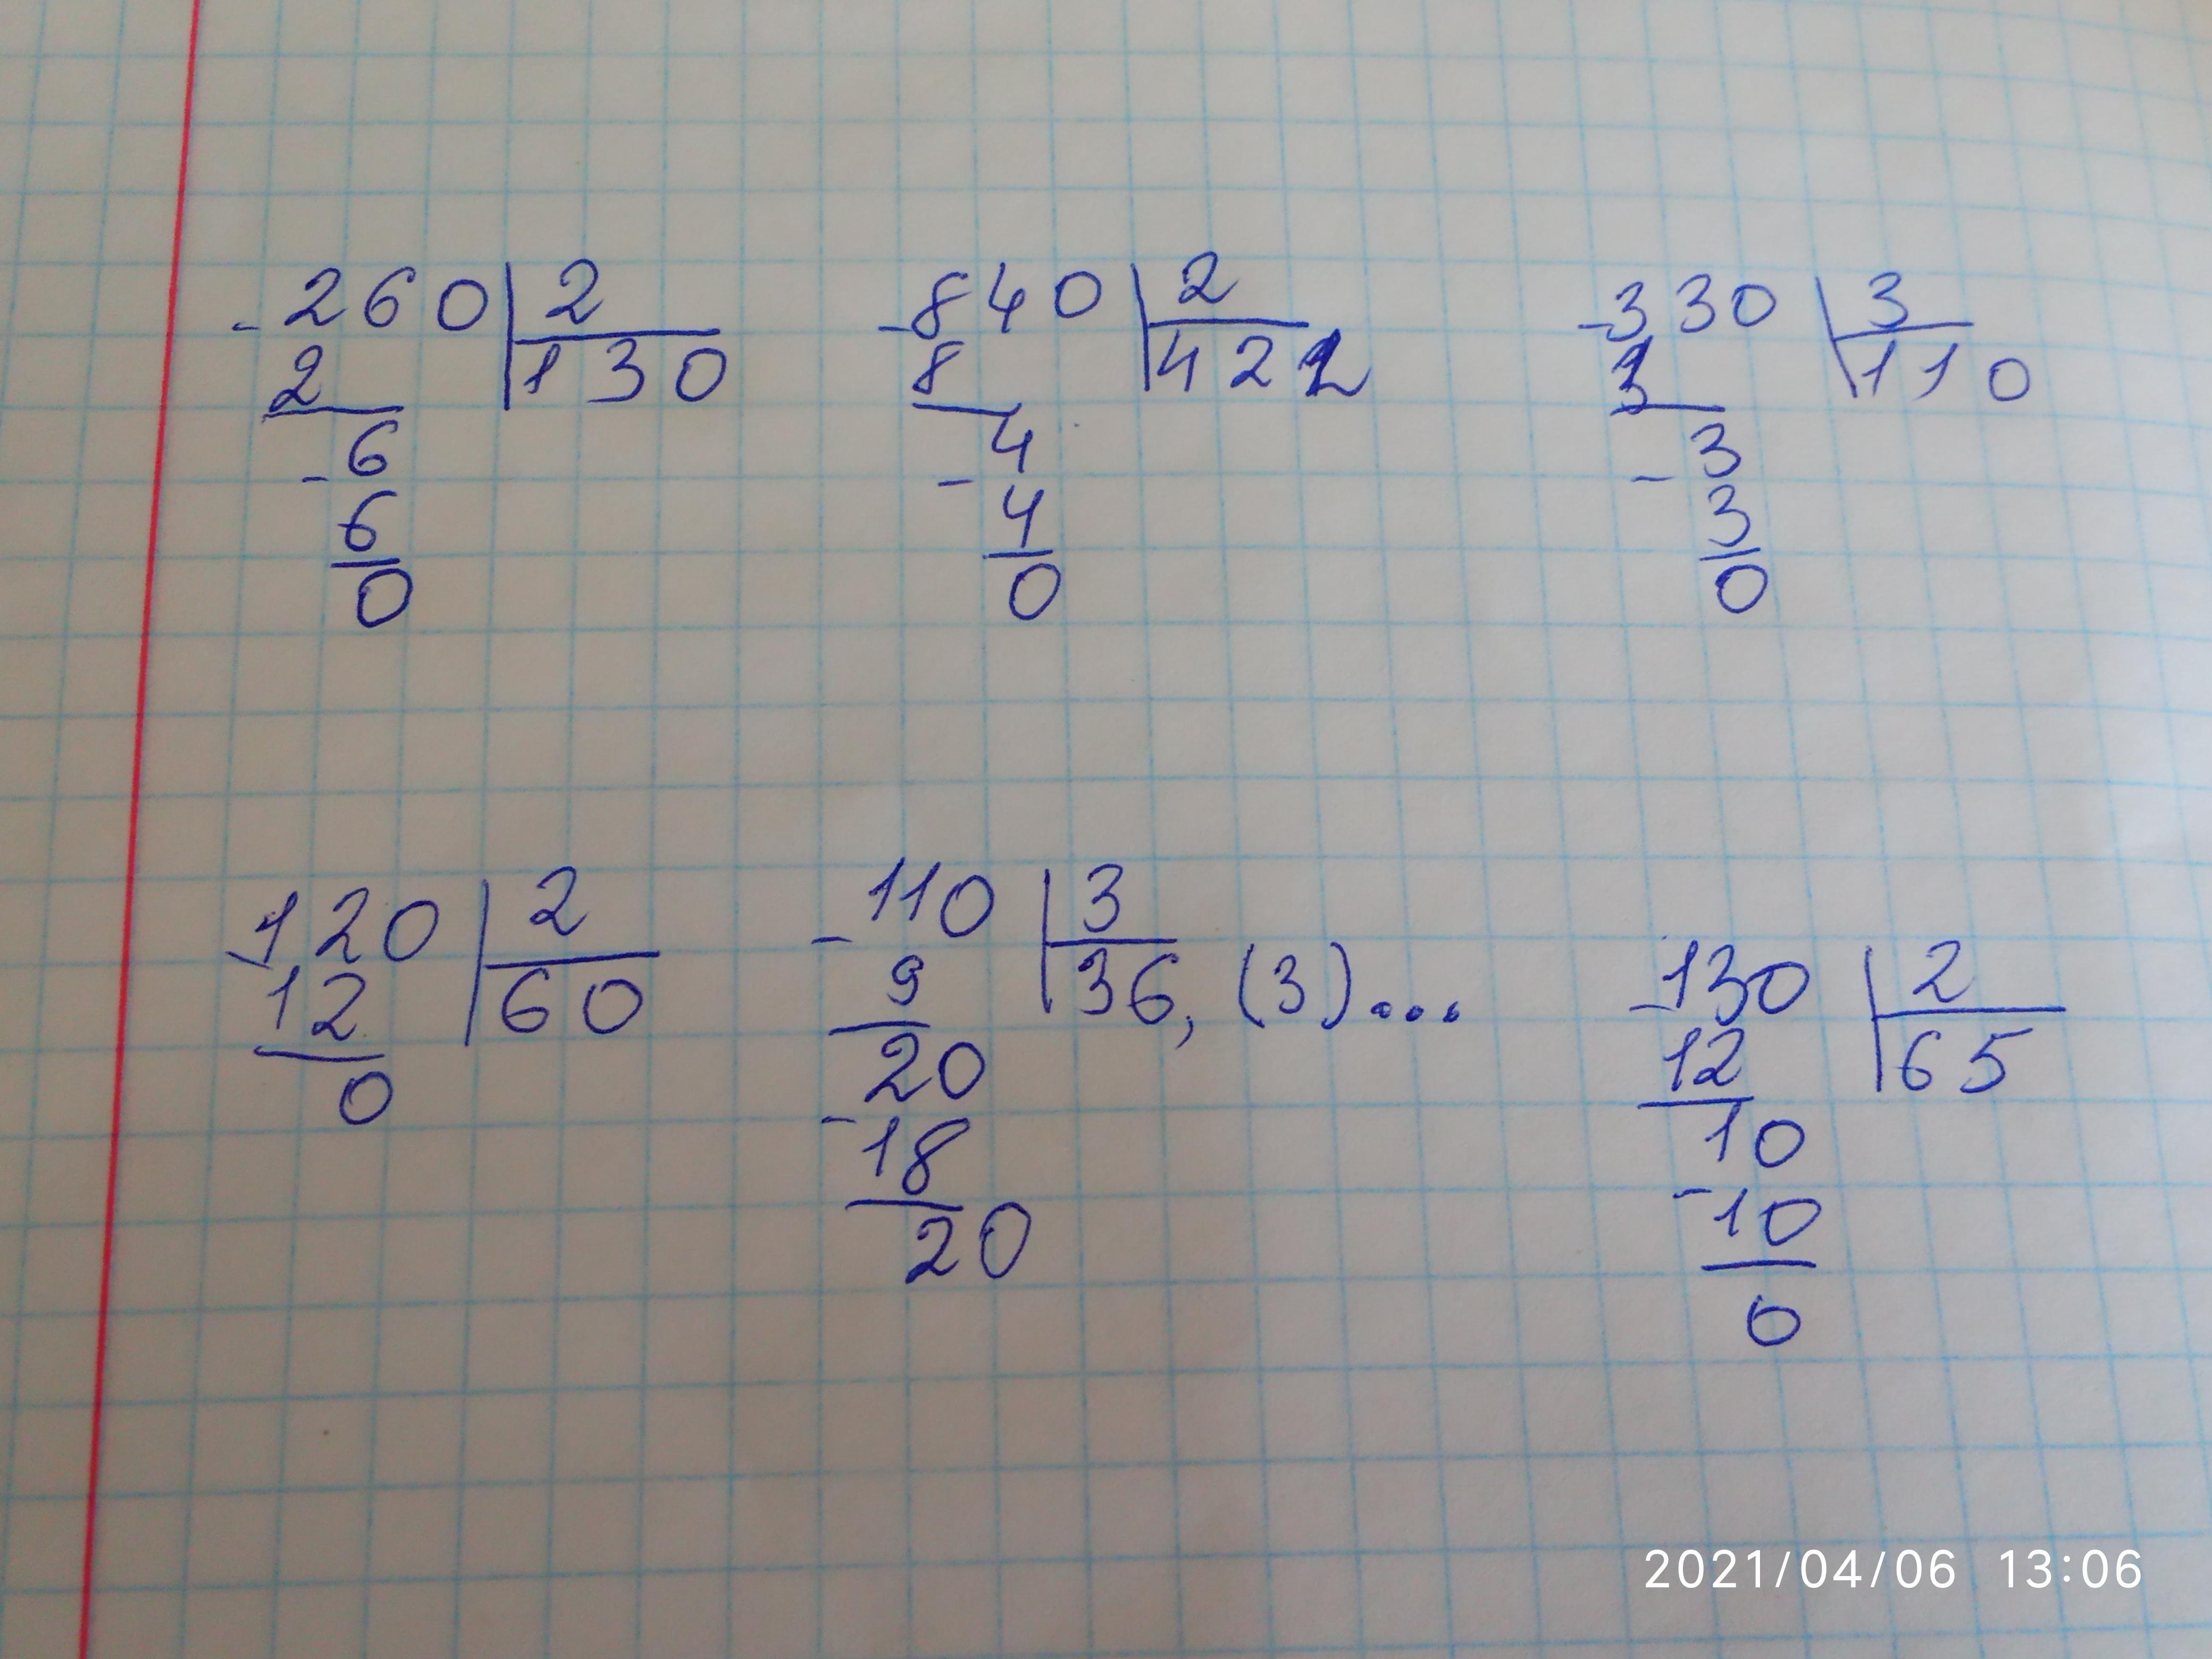 - 260 | 2
2 | 130
- 6
6
0
- 840 | 2
8 | 422
- 4
4
0
- 330 | 3
3 | 110
- 3
3
0
- 120 | 2
12 | 60
0
- 110 | 3
9 | 36, (3)...
20
- 18
20
- 130 | 2
12 | 65
10
- 10
0
2021/04/06 13:06